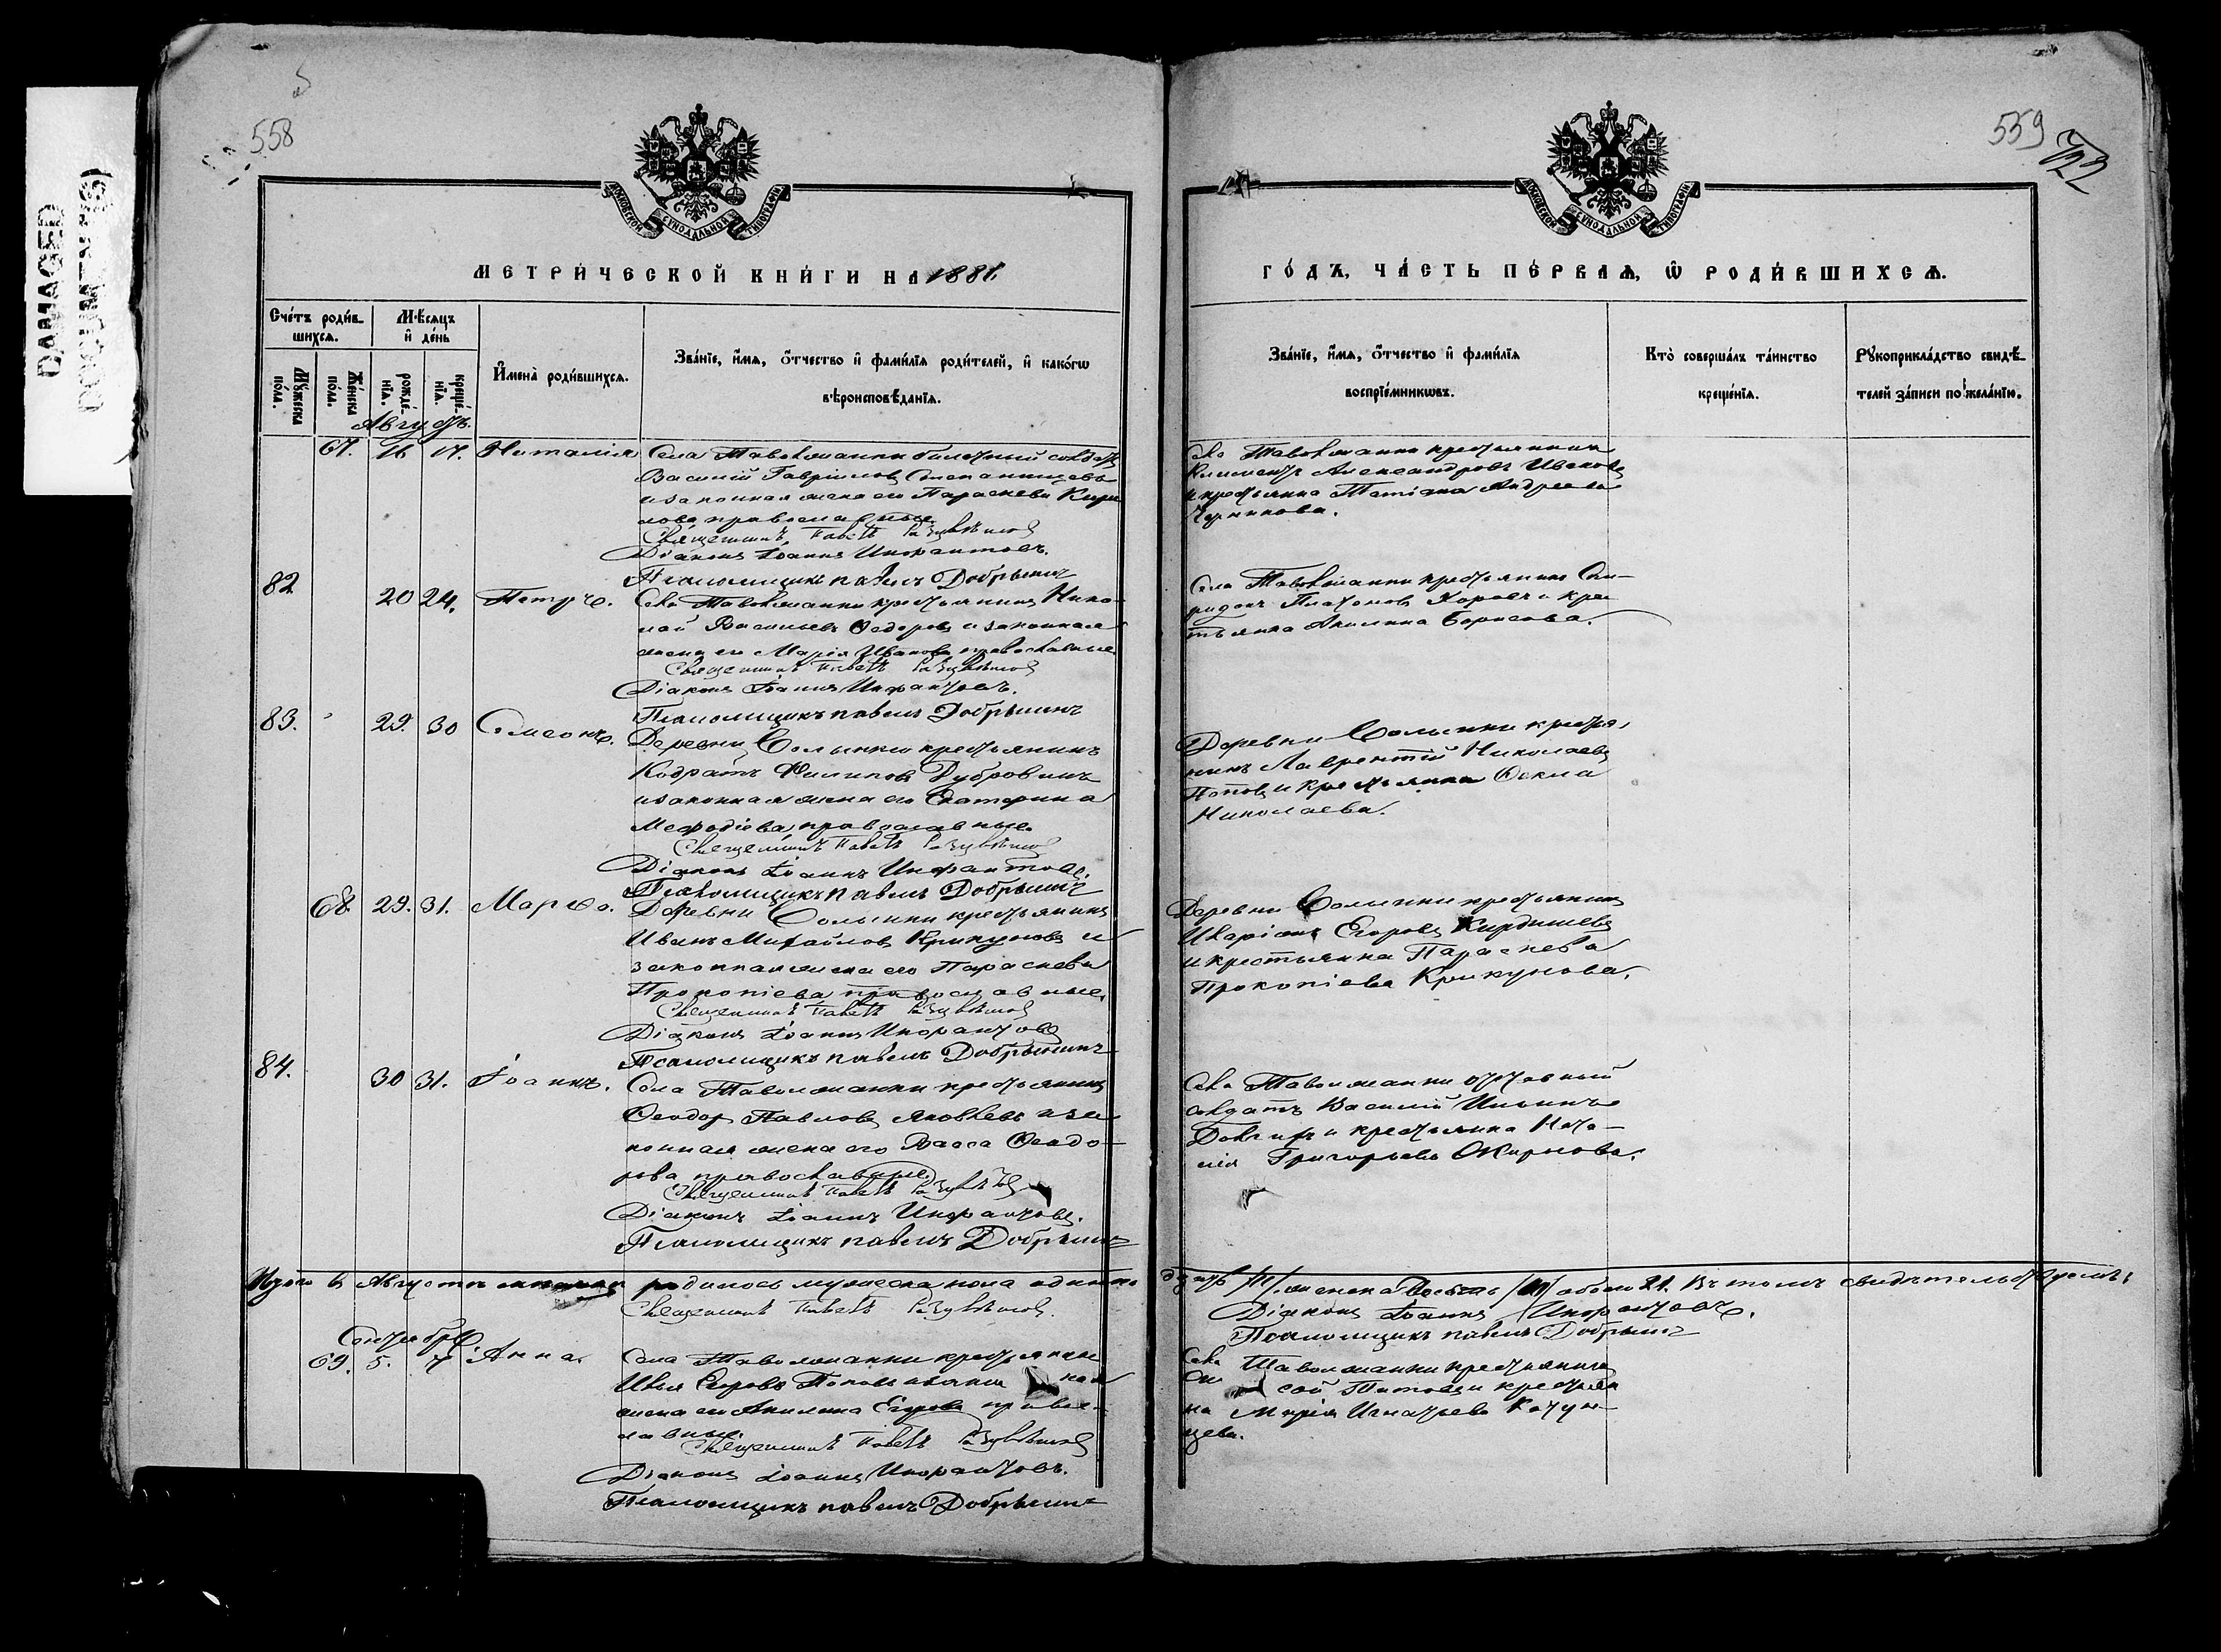 558
559
722
DAMAGED
DOCUMENT(S)
МОСКОВСКОЙ СѴНОДАЛЬНОЙ ТИПОГРАФІИ
МОСКОВСКОЙ СѴНОДАЛЬНОЙ ТИПОГРАФІИ
МЕТРИ́ЧЕСКОЙ КНИ́ГИ НА 1881.
ГО́ДЪ, ЧА́СТЬ ПЕ́РВАѦ, Ѡ РОДИ́ВШИХСѦ.
Сче́тъ роди́вшихсѧ.
Мѣ́сѧцъ и де́нь
Мꙋ́жеска по́ла.
Же́нска по́ла.
рожде́нїѧ.
креще́нїѧ.
И҆мена̀ роди́вшихсѧ.
Зва́нїе, и҆́мѧ, ѻ҆́тчество и҆ фами́лїѧ роди́телей, и҆ како́гѡ
вѣроисповѣ́данїѧ.
Зва́нїе, и҆́мѧ, ѻ҆́тчество и҆ фами́лїѧ
воспрїе́мникѡвъ.
Кто̀ соверша́лъ та́инство
креще́нїѧ.
Рꙋкоприкла́дство свидѣ́телей за́писи по жела́нїю.
Августъ.
67. 16 17. Наталія
Села Таволжанки билетный солдатъ
Василій Гавріиловъ
и законная жена его Параскева Кири
лова православные.
Священникъ Павелъ
Діаконъ Іоаннъ Инфантовъ.
Псаломщикъ павелъ Добрынинъ
Села Таволжанки крестьянинъ
Климентъ Александровъ Ивановъ
и крестьянка Татіана Андреева
82 20 24. Петръ.
Села Таволжанки крестьянинъ Нико
лай Васильевъ Федоровъ и законная
жена его Марія Иванова православные.
Священникъ Павелъ
Діаконъ Іоаннъ Инфантовъ.
Псаломщикъ павелъ Добрынинъ
Села Таволжанки крестьянинъ Спи-
ридонъ Платоновъ и крес
тьянка Акилина Борисова.
83. 29. 30 Симеонъ.
Деревни крестьянинъ
Кодратъ Филиповъ Дубровинъ
и законная жена его Екатерина
Мефодіева, православные.
Священникъ Павелъ
Діаконъ Іоаннъ Инфантовъ.
Псаломщикъ павелъ Добрынинъ
Деревни крестья
нинъ Лаврентій Николаевъ
Поповъ и крестьянка Ѳекла
Николаева.
68. 29. 31. Марѳа.
Деревни крестьянинъ
Иванъ Михайловъ Крикуновъ и
законная жена его Параскева
Прокопіева православные.
Священникъ Павелъ
Діаконъ Іоаннъ Инфантовъ
Псаломщикъ павелъ Добрынинъ
Деревни крестьянинъ
Иларіонъ Егоровъ
и крестьянка Параскева
Прокопіева Крикунова.
84. 30 31. Іоаннъ.
Села Таволжанки крестьянинъ
Ѳеодоръ Павловъ Яковлевъ и за
конная жена его Васса Ѳеодо-
рова православные.
Священникъ Павелъ
Діаконъ Іоаннъ Инфантовъ.
Псаломщикъ павелъ Добрынинъ
Села Таволжанки отставный
солдатъ Василій Ильинъ
и крестьянка Ната-
лія Григорьева
Итого въ Августѣ мѣсяцѣ родилось мужеска пола
обоего 21. Въ томъ свидѣтельствуемъ:
Священникъ Павелъ
Діаконъ Іоаннъ Инфантовъ.
Псаломщикъ павелъ Добрынинъ
Сентябрь.
69. 5. 7 Анна.
Села Таволжанки крестьянинъ
Илья Егоровъ Поповъ
жена его Акилина Егорова правос
лавные.
Священникъ Павелъ
Діаконъ Іоаннъ Инфантовъ.
Псаломщикъ павелъ Добрынинъ
Села Таволжанки крестьянинъ
Титовъ и крестьян
ка Марія Игнатьева